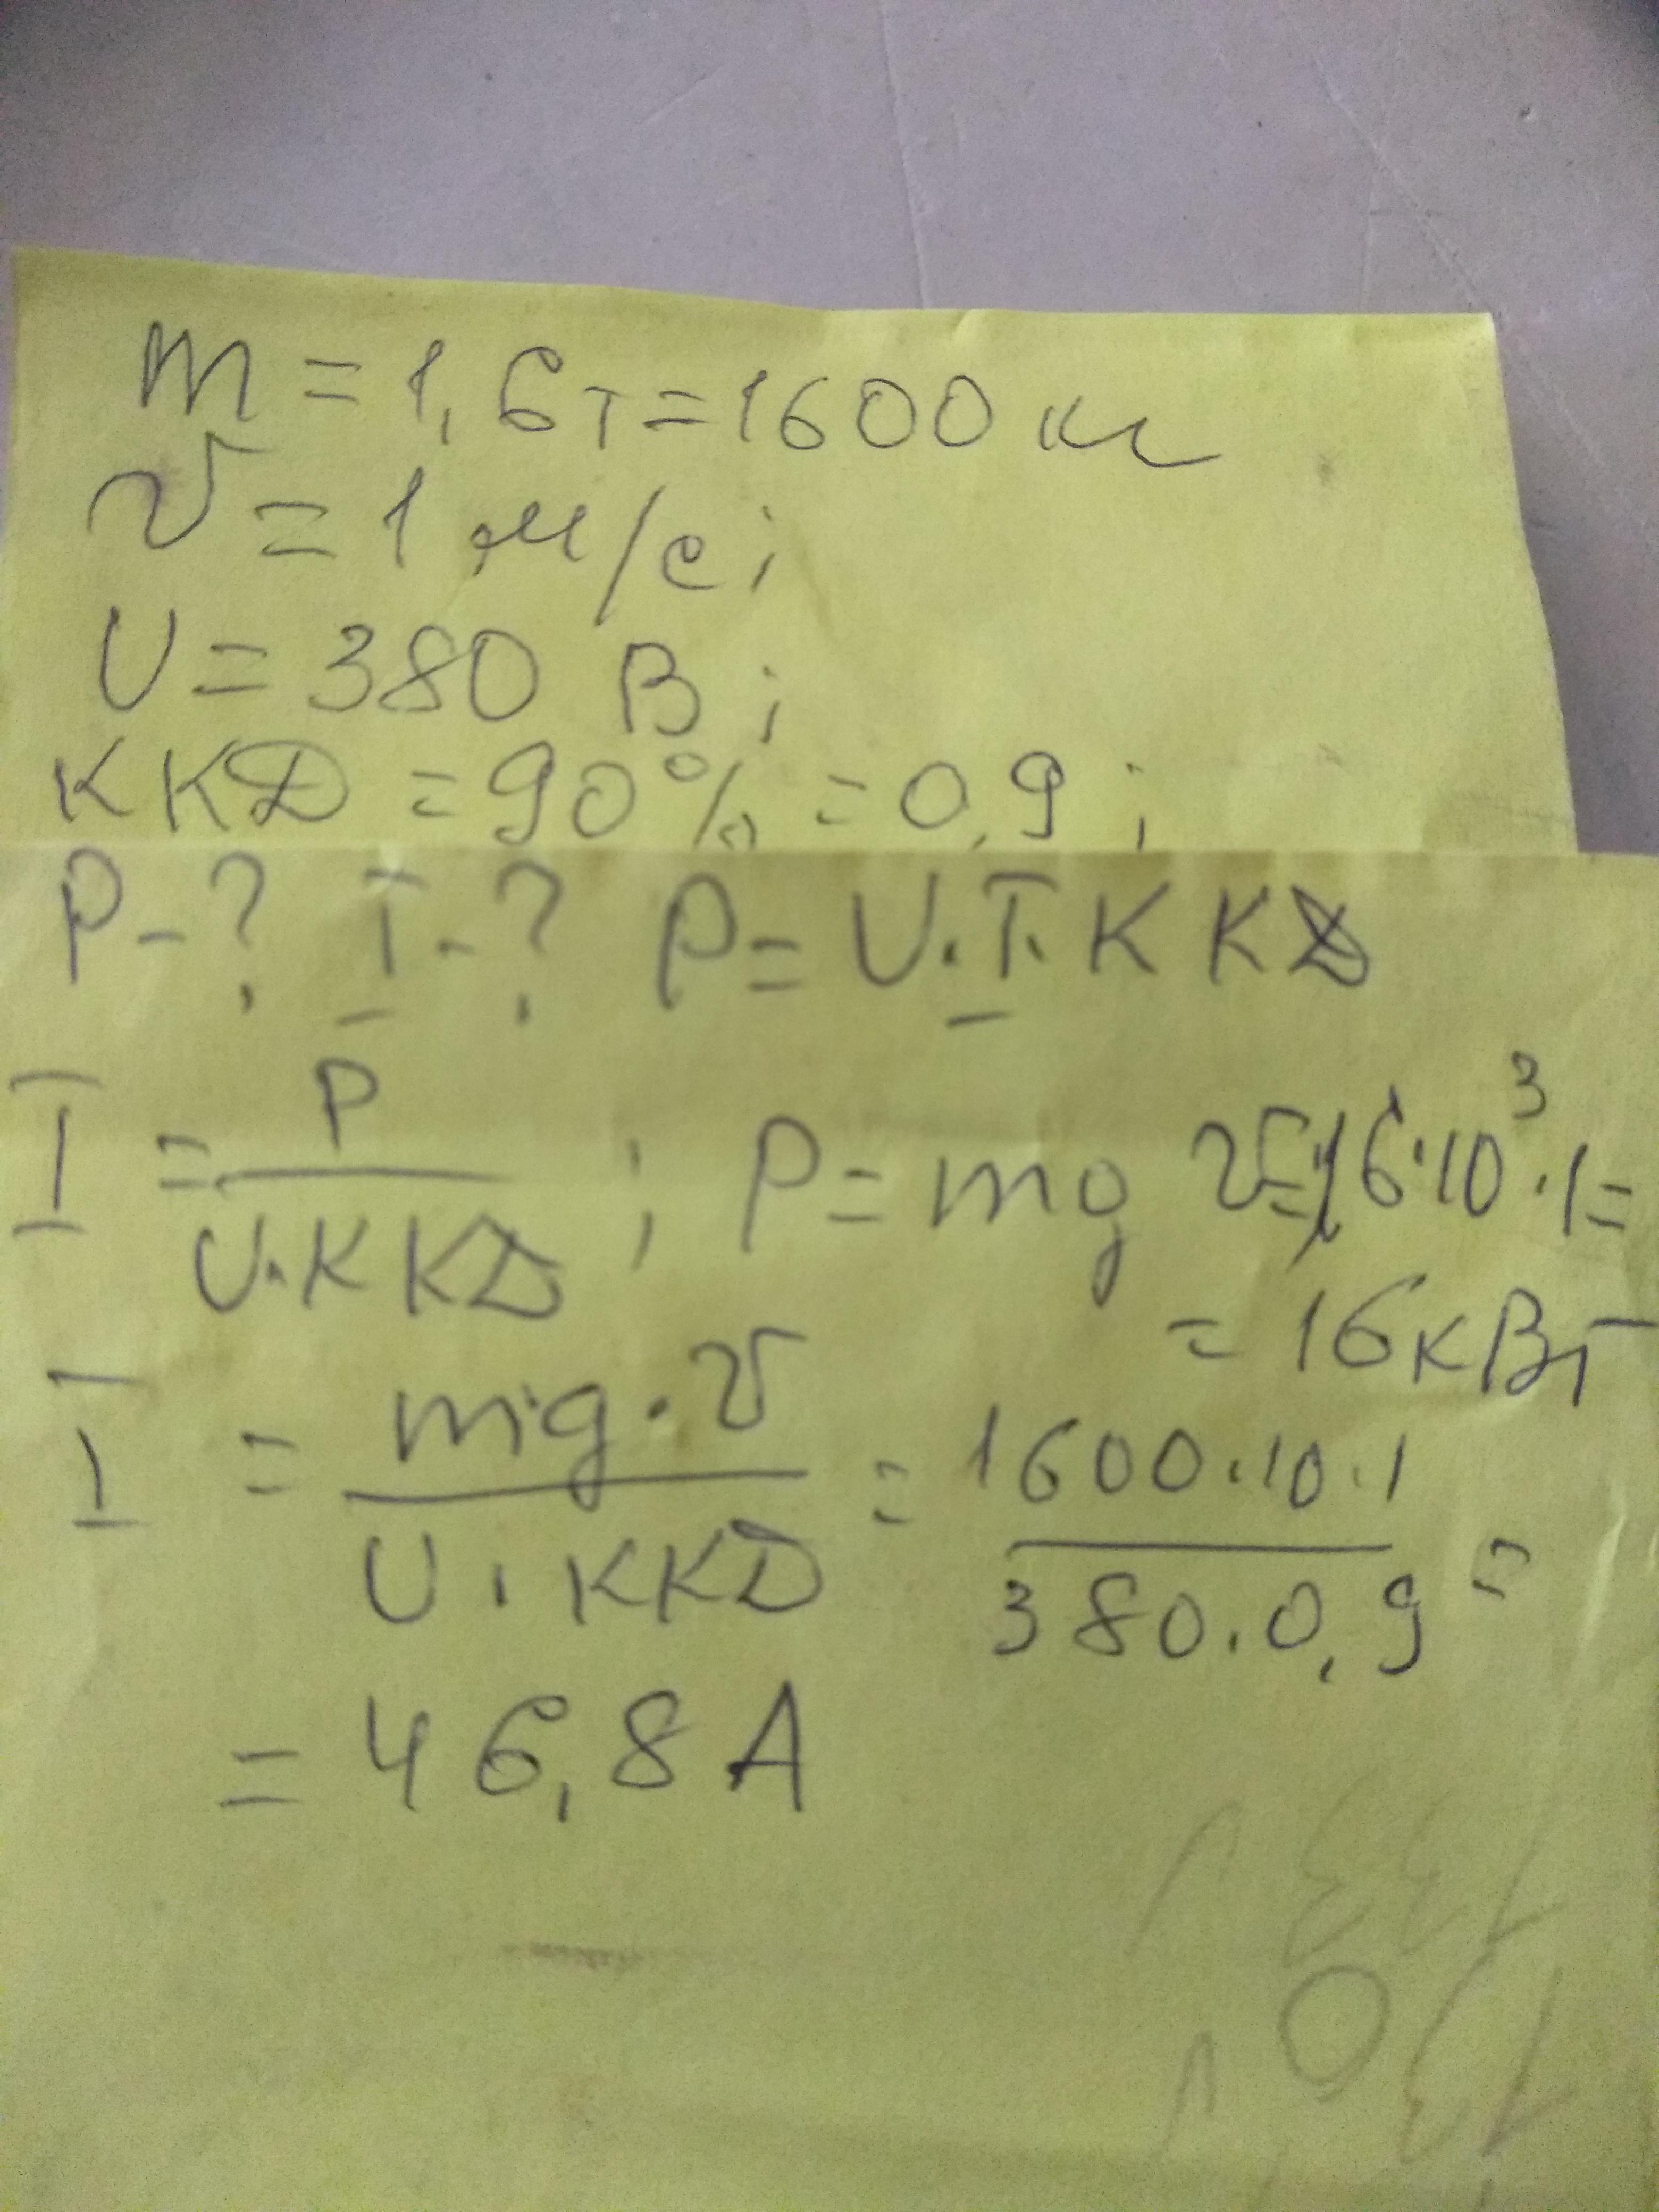 m = 1,6т = 1600 кг
v = 1 м/с;
U = 380 В;
ККД = 90% = 0,9;
P - ? I - ? P = U · I · ККД
I = P / U · ККД ; P = mg v = 16 · 10³ · 1 =
= 16 кВт
I = m · g · v / U · ККД = 1600 · 10 · 1 / 380 · 0,9 =
= 46,8 А